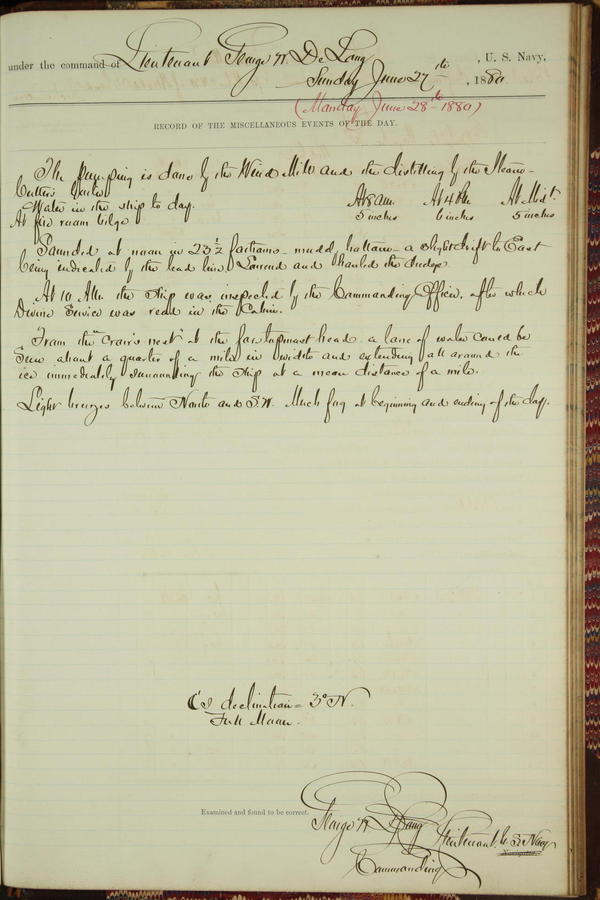 under the command of Lieutenant George W. De Long, U. S. Navy,
Sunday June 27th, 1880
(Monday June 28th 1880)
RECORD OF THE MISCELLANEOUS EVENTS OF THE DAY.
The pumping is done by the Wind Mill and the distilling by the Steam-
Cutters boiler
Water in the ship to day. At 8 am. At 4 PM. At Mid't.
At fire room bilge 5 inches 6 inches 5 inches
Sounded at noon in 23½ fathoms - mud bottom - a slight drift to East
being indicated by the lead line. Lowered and hauled the dredge.
At 10 AM. the ship was inspected by the Commanding Officer, after which
Divine Service was read in the Cabin.
From the "crow's nest" at the foretopmast head a lane of water could be
seen about a quarter of a mile in width and extending all around the
ice immediately surrounding the ship at a mean distance of a mile.
Light breezes between North and S.W. Much fog at beginning and ending of the day.
declination = 3° N.
Full Moon.
Examined and found to be correct.
George W. De Long Lieutenant U. S. Navy
Commanding